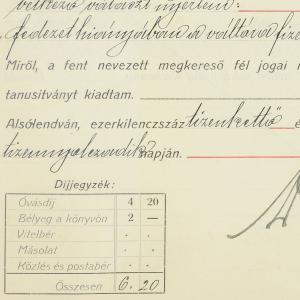 választ nyertem:
fedezet hiányában a váltóra fize
Miről, a fent nevezett megkereső fél jogai
tanusítványt kiadtam.
Alsólendván, ezerkilenczszáz tizenkettő é
tizennyolczadik napján.
Díjjegyzék:
Óvásdíj 4 20
Bélyeg a könyvön 2 —
Vitelbér . .
Másolat . .
Közlés és postabér . .
Összesen 6. 20